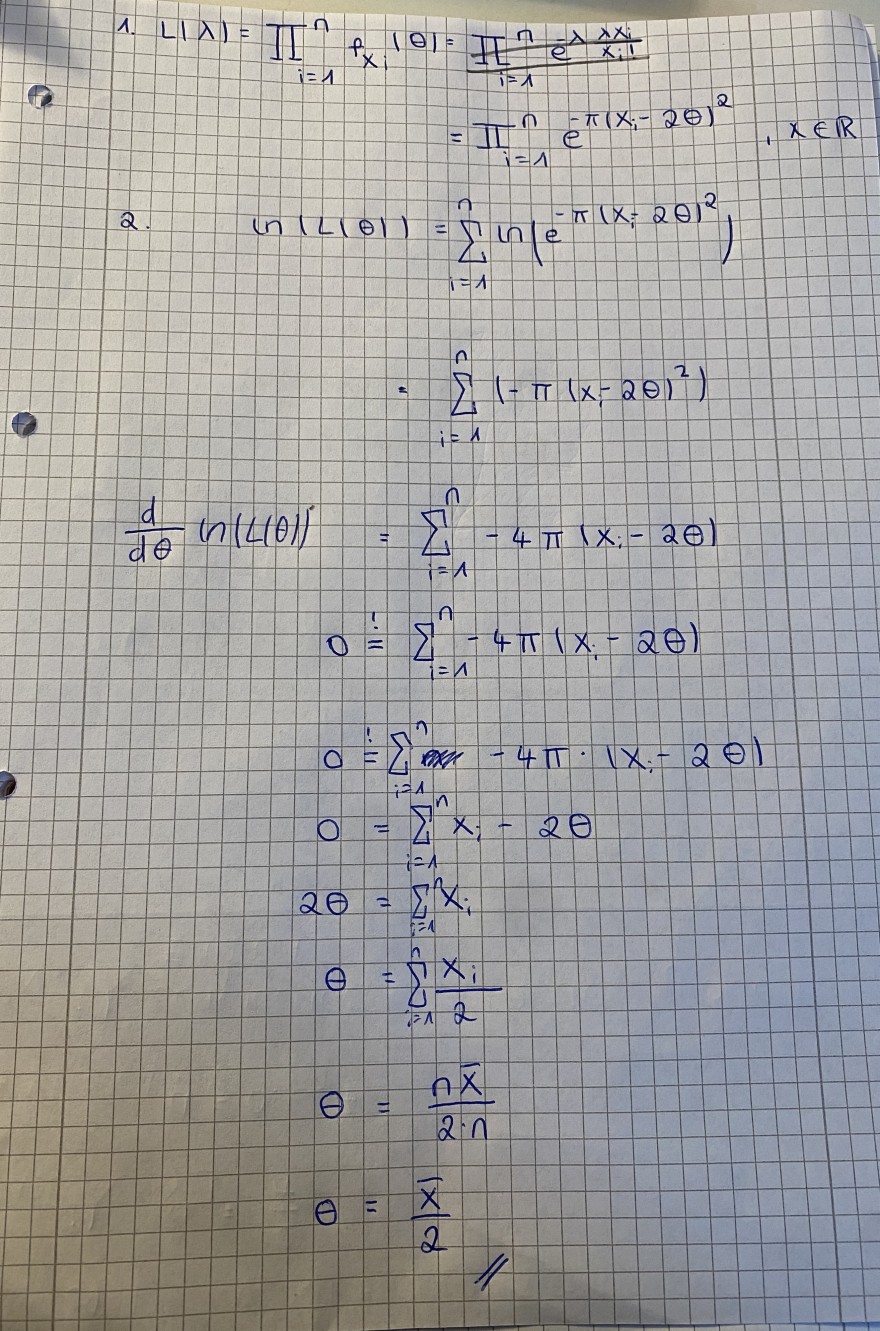 1. L(λ) = ∏_{i=1}^{n} f_{x_i}(θ) = ∏_{i=1}^{n} e^{-λ} λx_i / x_i!
= ∏_{i=1}^{n} e^{-π(x_i - 2θ)^2} , x ∈ ℝ
2. ln(L(θ)) = ∑_{i=1}^{n} ln(e^{-π(x_i - 2θ)^2})
= ∑_{i=1}^{n} (-π(x_i - 2θ)^2)
d/dθ ln(L(θ)) = ∑_{i=1}^{n} -4π(x_i - 2θ)
0 =! ∑_{i=1}^{n} -4π(x_i - 2θ)
0 =! ∑_{i=1}^{n} -4π · (x_i - 2θ)
0 = ∑_{i=1}^{n} x_i - 2θ
2θ = ∑_{i=1}^{n} x_i
θ = ∑_{i=1}^{n} x_i / 2
θ = nx̄ / 2·n
θ = x̄ / 2